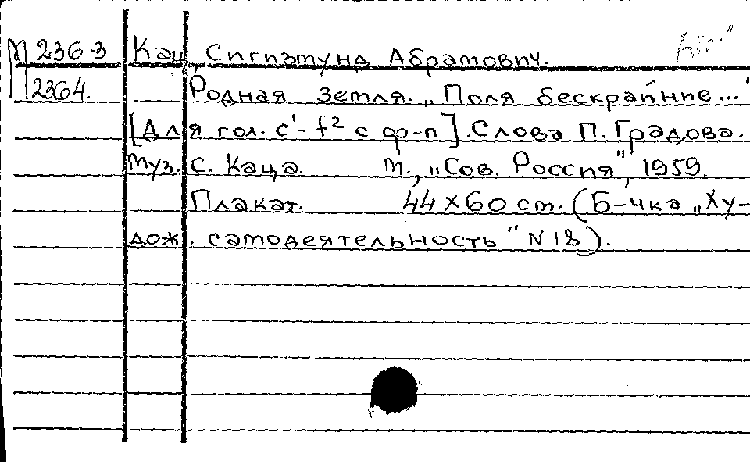 П 2363 Кац, Сигизмунд Абрамович.
2364. Родная земля. „Поля бескрайние..."
[Для гол. c¹-f² с ф-п]. Слова П. Градова.
Муз. С. Каца. М., „Сов. Россия", 1959.
Плакат. 44×60 см. (Б-чка „Ху-
дож. самодеятельность" N 18).